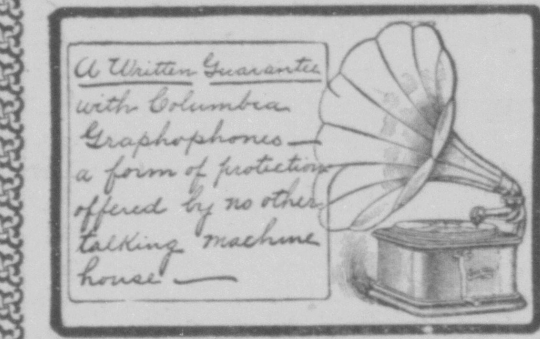 A Written Guarantee
with Columbia
Graphophones —
a form of protection
offered by no other
talking machine
house —